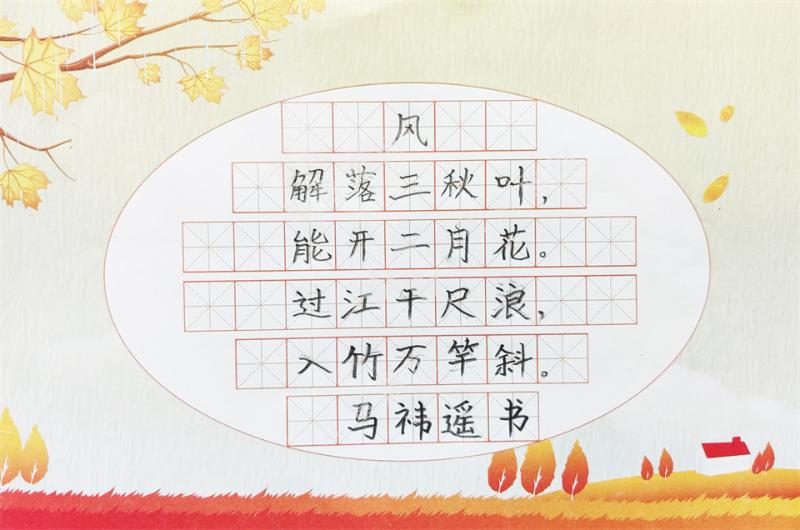 风
解落三秋叶，
能开二月花。
过江干尺浪，
入竹万竿斜。
马祎遥书